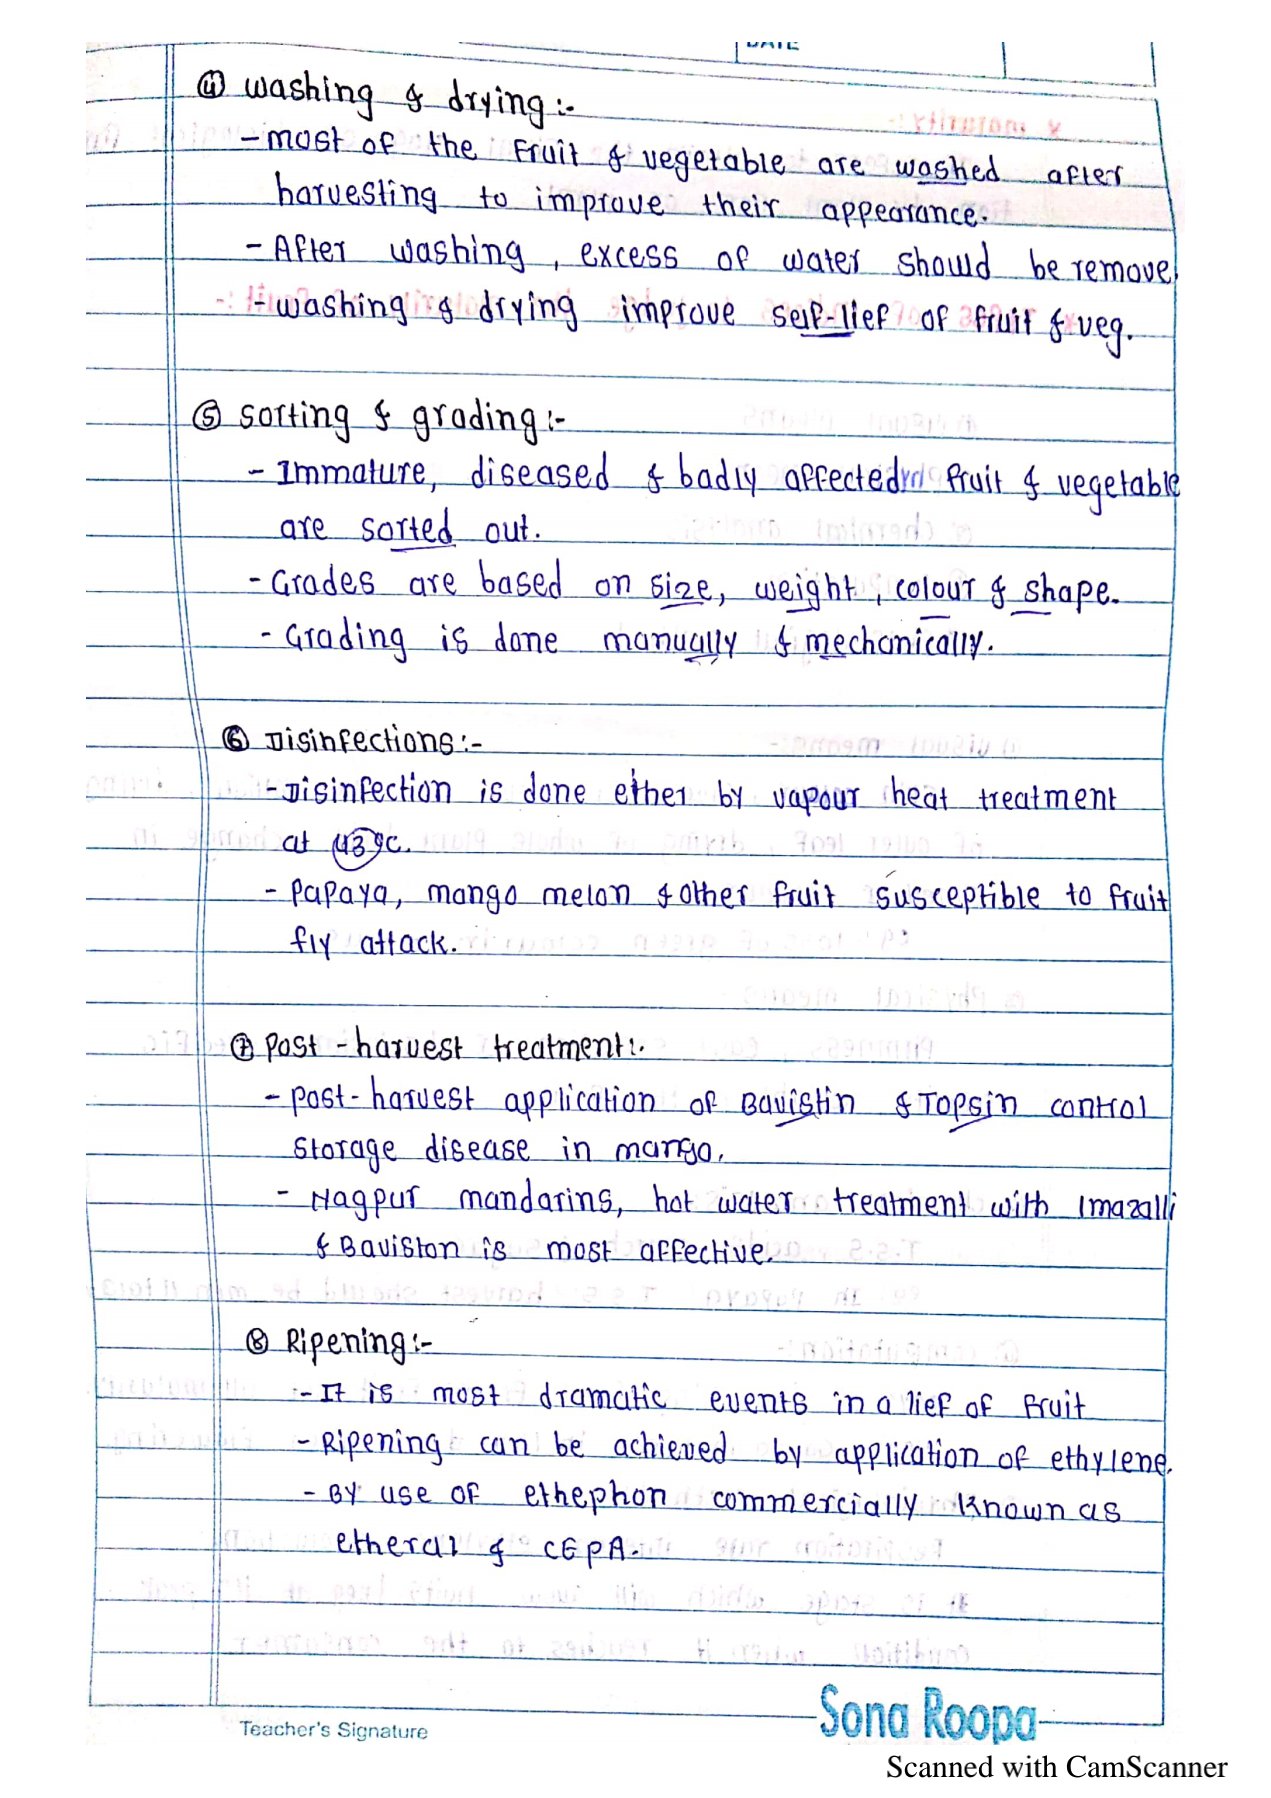 DATE
④ Washing & drying :-
- most of the fruit & vegetable are washed after
harvesting to improve their appearance.
- After washing, excess of water should be remove.
- washing & drying improve self-lief of fruit & veg.
⑤ Sorting & grading :-
- Immature, diseased & badly affected fruit & vegetable
are sorted out.
- Grades are based on size, weight, colour & shape.
- Grading is done manually & mechanically.
⑥ Disinfections :-
- Disinfection is done ether by vapour heat treatment
at 43°C.
- Papaya, mango melon & other fruit susceptible to fruit
fly attack.
⑦ Post-harvest treatment :-
- Post-harvest application of Bavistin & Topsin control
Storage disease in mango.
- Nagpur mandarins, hot water treatment with Imazalli
& Baviston is most affective.
⑧ Ripening :-
- It is most dramatic events in a lief of fruit
- Ripening can be achieved by application of ethylene.
- By use of ethephon commercially known as
etheral & CEPA.
Teacher's Signature
Sona Roopa
Scanned with CamScanner